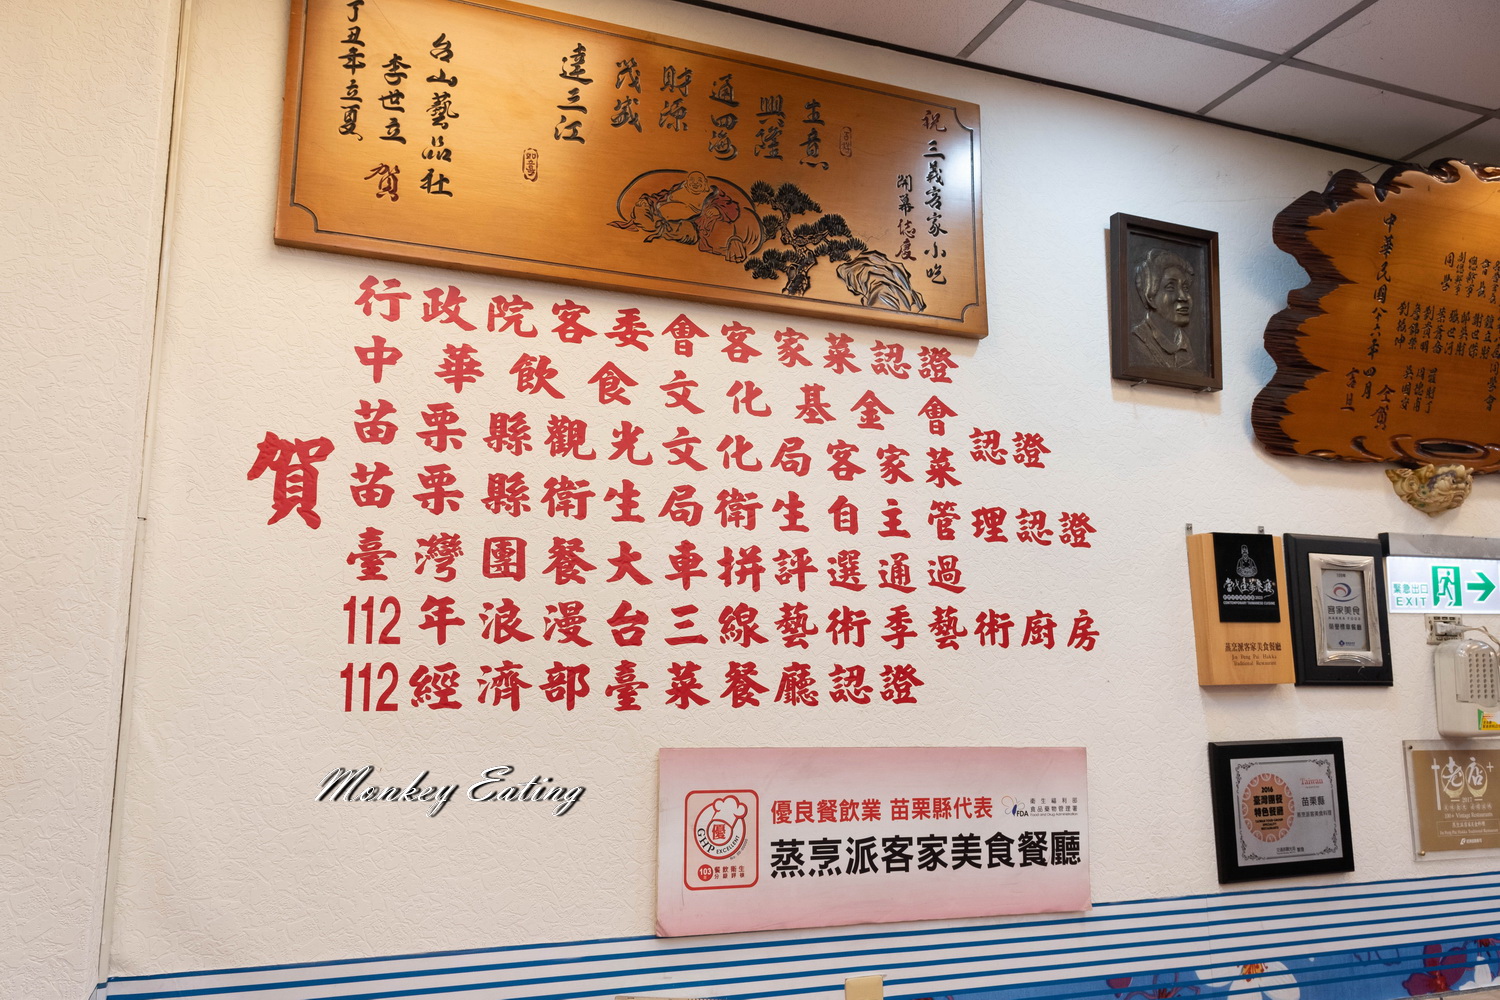 祝 三義客家小吃
開幕誌慶
生意
興隆
通四海
財源
茂盛
達三江
台山藝品社
李世立 賀
丁丑年立夏
賀
行政院客委會客家菜認證
中華飲食文化基金會
苗栗縣觀光文化局客家菜認證
苗栗縣衛生局衛生自主管理認證
臺灣團餐大車拼評選通過
112年浪漫台三線藝術季藝術廚房
112經濟部臺菜餐廳認證
Monkey Eating
優良餐飲業 苗栗縣代表
衛生福利部
食品藥物管理署
FDA
Food and Drug Administration
蒸烹派客家美食餐廳
優
GHP EXCELLENT
103
餐飲衛生
分級評核
中華民國八六年四月
仝賀
CONTEMPORARY TAIWANESE CUISINE
蒸烹派客家美食餐廳
Traditional Restaurant
客家美食
緊急出口
EXIT
2016
臺灣團餐
特色餐廳
Taiwan
苗栗縣
老店
2017